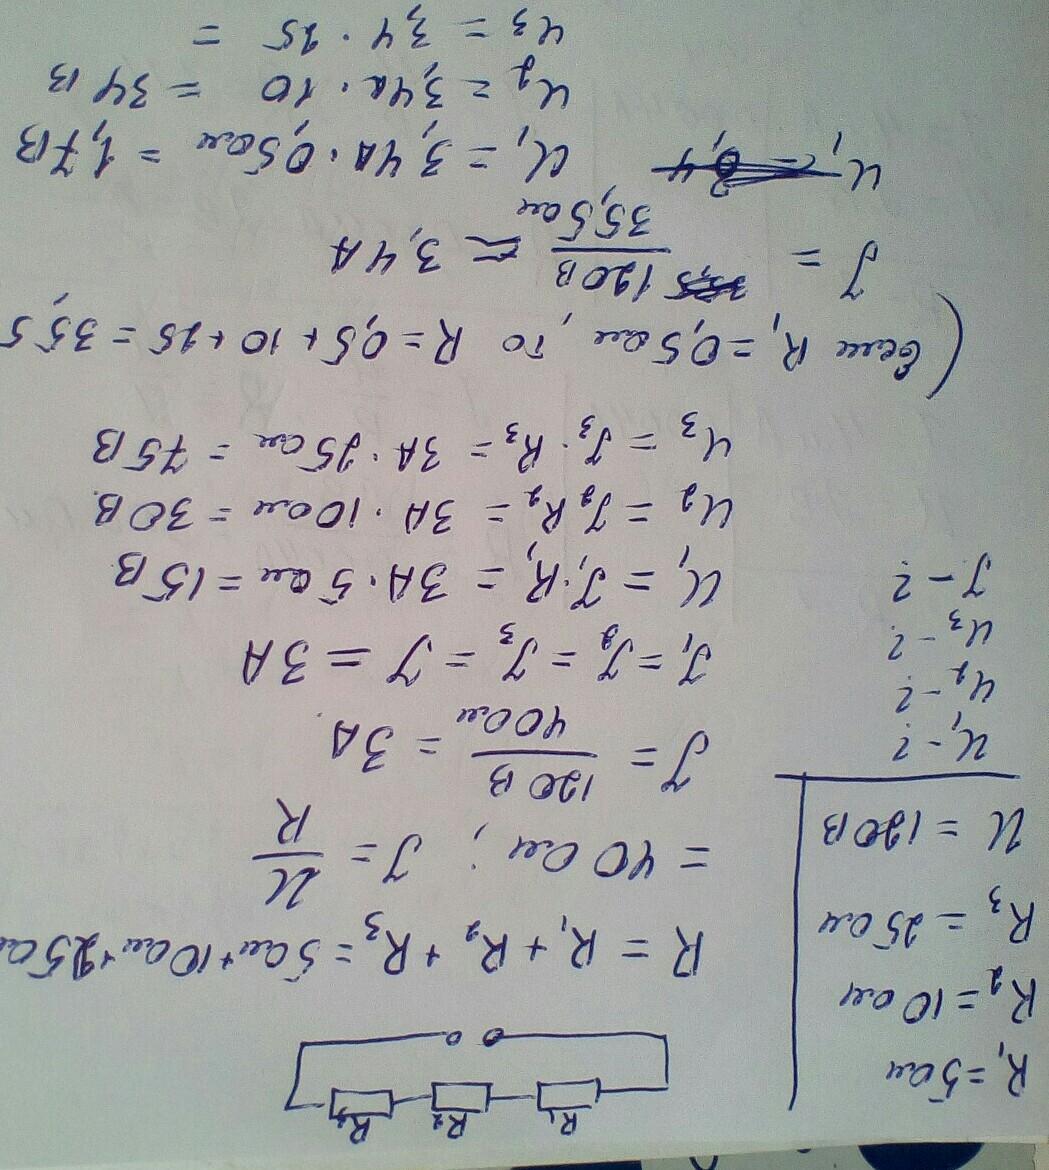 R₁ R₂ R₃
R₁ = 5 Ом
R₂ = 10 Ом
R₃ = 25 Ом
U = 120 В
U₁ - ?
U₂ - ?
U₃ - ?
J - ?
R = R₁ + R₂ + R₃ = 5 Ом + 10 Ом + 25 Ом
= 40 Ом ; J = U/R
J = 120 В/40 Ом = 3 А.
J₁ = J₂ = J₃ = J = 3 А
U₁ = J₁·R₁ = 3 А · 5 Ом = 15 В
U₂ = J₂R₂ = 3 А · 10 Ом = 30 В.
U₃ = J₃·R₃ = 3 А · 25 Ом = 75 В
(если R₁ = 0,5 Ом, то R = 0,5 + 10 + 25 = 35,5
J = 120 В/35,5 Ом ≈ 3,4 А
U₁ = 3,4 А · 0,5 Ом = 1,7 В
U₂ = 3,4 А · 10 = 34 В
U₃ = 3,4 · 25 =